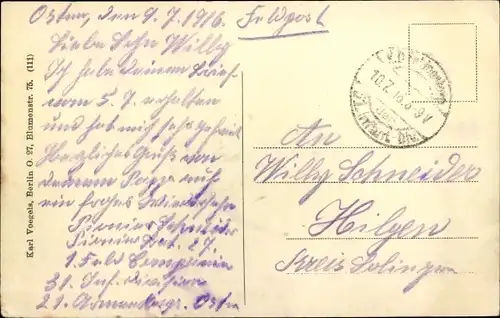 Osten, den 9.7.1916. Feldpost
Liebe Sohn Willy
Ich habe deinen Brief
vom 5.7. erhalten
und hat mich sehr gefreut
Herzliche Gruß von
deinem Papa auf
ein frohes Wiedersehn
Pionier Schneider
Pionier Bat. 27
1. Feld Compagnie
31. Inf. Division
21. Armeekorps. Osten
Karl Voegels, Berlin O. 27, Blumenstr. 75. (111)
10.7.16. 8-9V
An
Willy Schneider
Hilgen
Kreis Solingen